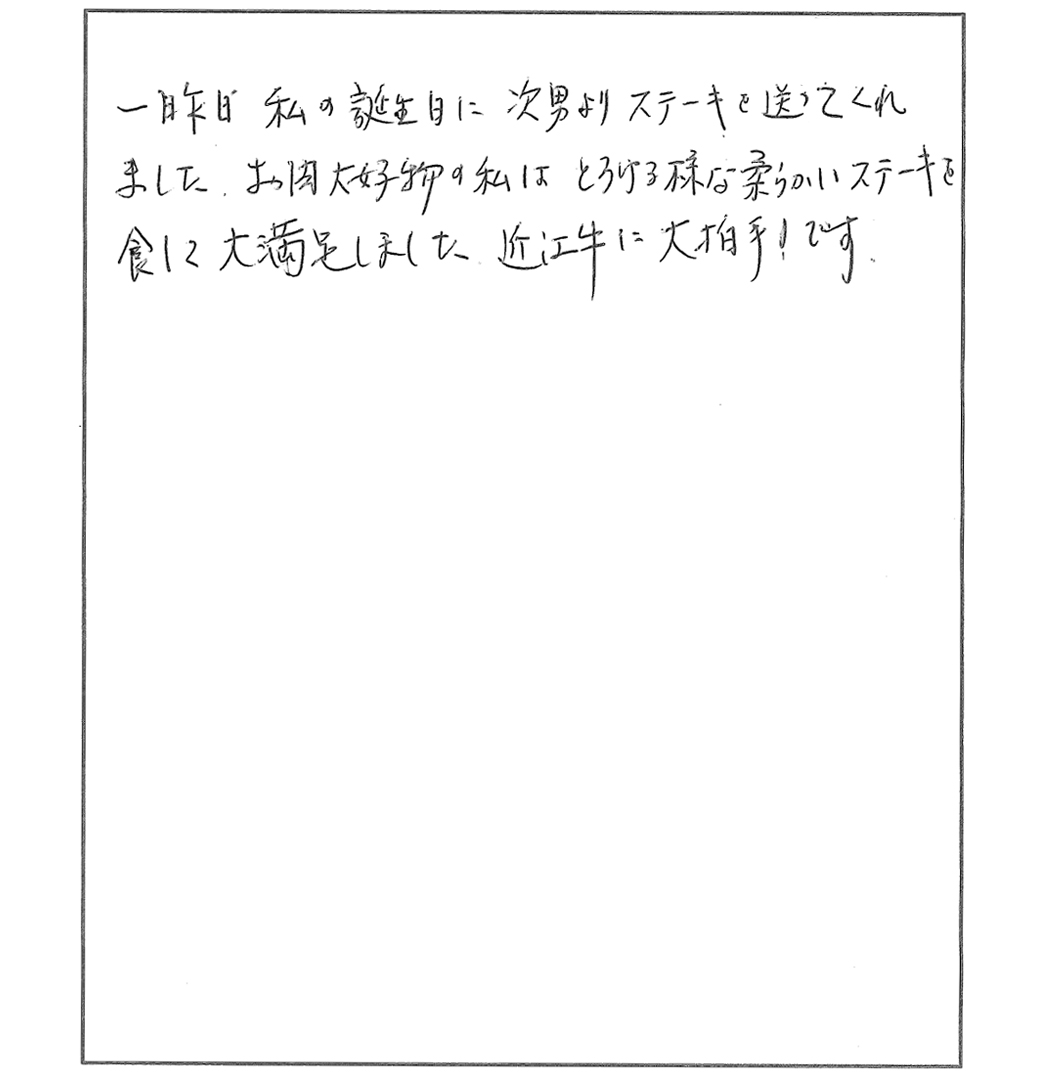 一昨日 私の誕生日に 次男よりステーキを送ってくれ
ました. お肉大好物の私は とろける様な柔らかいステーキを
食して 大満足しました. 近江牛に 大拍手!です.